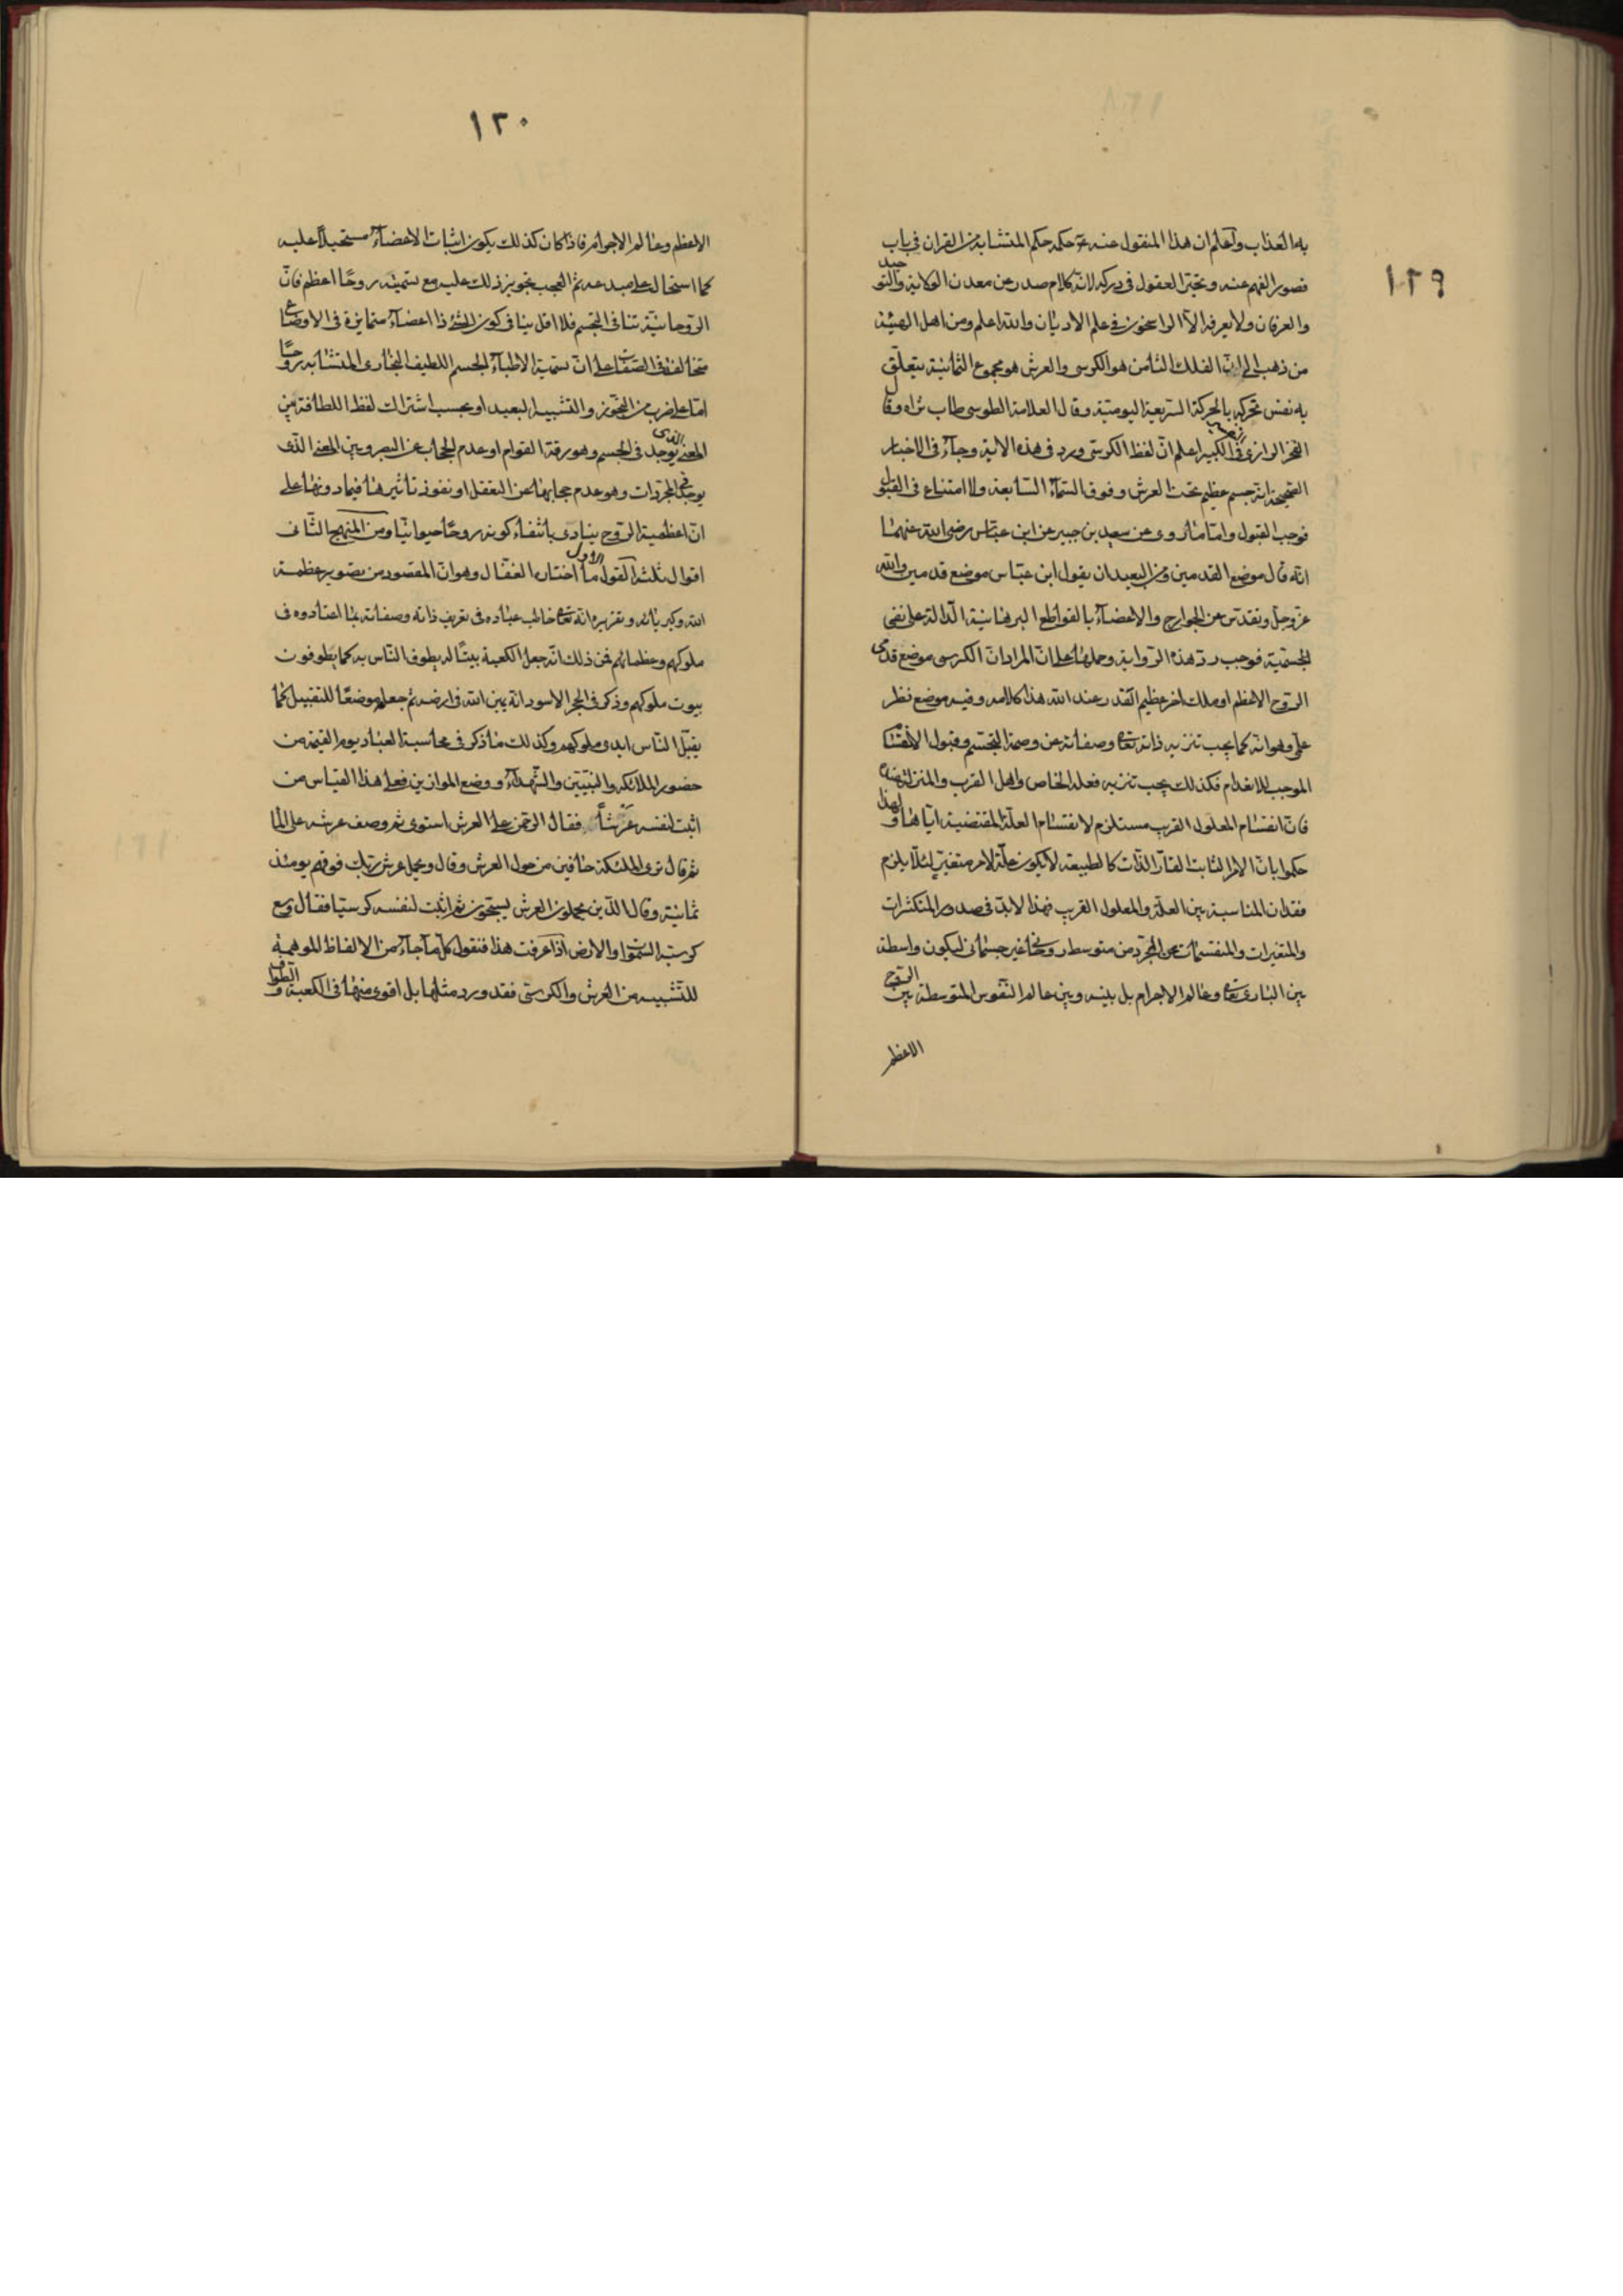 ١٢٩
به العذاب واعلم ان هذا المنقول عنه ع حكمه حكم المتشابه من القران في باب
قصور الفهم عنه وتحير العقول في دركه لانه كلام صدر عن معدن الولاية والتوحيد
والعرفان ولا يعرفه الا الراسخون في علم الاديان والله اعلم ومن اهل الهيئة
من ذهب الى ان الفلك الثامن هو الكرسى والعرش هو مجموع الثمانية يتعلق
به نفس تحركه بالحركة السريعة اليومية وقال العلامة الطوسى طاب ثراه وقال
الفخر الرازى في الكبير اعلم ان لفظ الكرسى ورد في هذه الاية وجاء في الاخبار
الصحيحة انه جسم عظيم تحت العرش وفوق السماء السابعة ولا امتناع في القول
فوجب القبول واما ما روى عن سعيد بن جبير عن ابن عباس رضى الله عنهما
انه قال موضع القدمين ومن البعيد ان يقول ابن عباس موضع قدمين والله
عز وجل وتقدس عن الجوارح والاعضاء بالقواطع البرهانية الدالة على نفى
الجسمية فوجب رد هذه الرواية وحملها على ان المراد ان الكرسى موضع قدمى
الروح الاعظم او ملك اخر عظيم القدر عند الله هذا كلامه وفيه موضع نظر
على وهو انه كما يجب تنزيه ذاته تعالى وصفاته عن وصمة التجسم وقبول الانقسام
الموجب للانعدام فكذلك يجب تنزيه فعله الخاص واهل القرب والمنزلة
فان انقسام المعلول القريب مستلزم لانقسام العلة المقتضية اياها ولهذا
حكموا بان الامر الثابت القار الذات كالطبيعة لا يكون علة لامر متغير لئلا يلزم
فقدان المناسبة بين العلة والمعلول القريب فهذا لابد في صدور المتكثرات
والمتغيرات والمنقسمات عن المجرد من متوسط روحانى غير جسمانى ليكون واسطة
بين البارى تعالى وعالم الاجرام بل بينه وبين عالم النفوس المتوسطة بين الروح
الاعظم
١٣٠
الاعظم وعالم الاجرام فاذا كان كذلك يكون اثبات الاعضاء مستحيلا عليه
كما استحال على مبدعه ثم العجب تجويز ذلك عليه مع تسميته روحا اعظم فان
الروحانية تنافى التجسم فلا اقل ينافى كون الشئ ذا اعضاء متمايزة في الاوضاع
متخالفة في الصفات على ان تسمية الاطباء الجسم اللطيف البخارى المتشابه روحا
اما على ضرب من التجوز والتشبيه البعيد او بحسب اشتراك لفظ اللطافة بين
المعنى الذى يوجد في الجسم وهو رقة القوام او عدم الحجاب عن البصر وبين المعنى الذى
يوجد في المجردات وهو عدم حجابها عن التعقل او نفوذ تأثيرها فيما دونها على
ان اعظمية الروح ينادى بانتفاء كونه روحا حيوانيا ومن المنهج الثانى
اقوال ثلثة القول الاول ما اختاره القفال وهو ان المقصود من تصوير عظمة
الله وكبريائه وتقريره انه تعالى خاطب عباده في تعريف ذاته وصفاته بما اعتادوه في
ملوكهم وعظمائهم فمن ذلك انه جعل الكعبة بيتا له يطوف الناس به كما يطوفون
بيوت ملوكهم وذكر في الحجر الاسود انه يمين الله في ارضه ثم جعله موضعا للتقبيل كما
يقبل الناس ايدى ملوكهم وكذلك ما ذكر في محاسبة العباد يوم القيمة من
حضور الملائكة والنبيين والشهداء ووضع الموازين فعلى هذا القياس من
اثبت لنفسه عرشا فقال الرحمن على العرش استوى ثم وصف عرشه على الما
ثم قال ترى الملئكة حافين من حول العرش وقال ويحمل عرش ربك فوقهم يومئذ
ثمانية وقال الذين يحملون العرش يسبحون ثم اثبت لنفسه كرسيا فقال وسع
كرسيه السموات والارض اذا عرفت هذا فنقول كل ما جاء من الالفاظ الموهمة
للتشبيه من العرش والكرسى فقد ورد مثلها بل اقوى منها في الكعبة والطواف